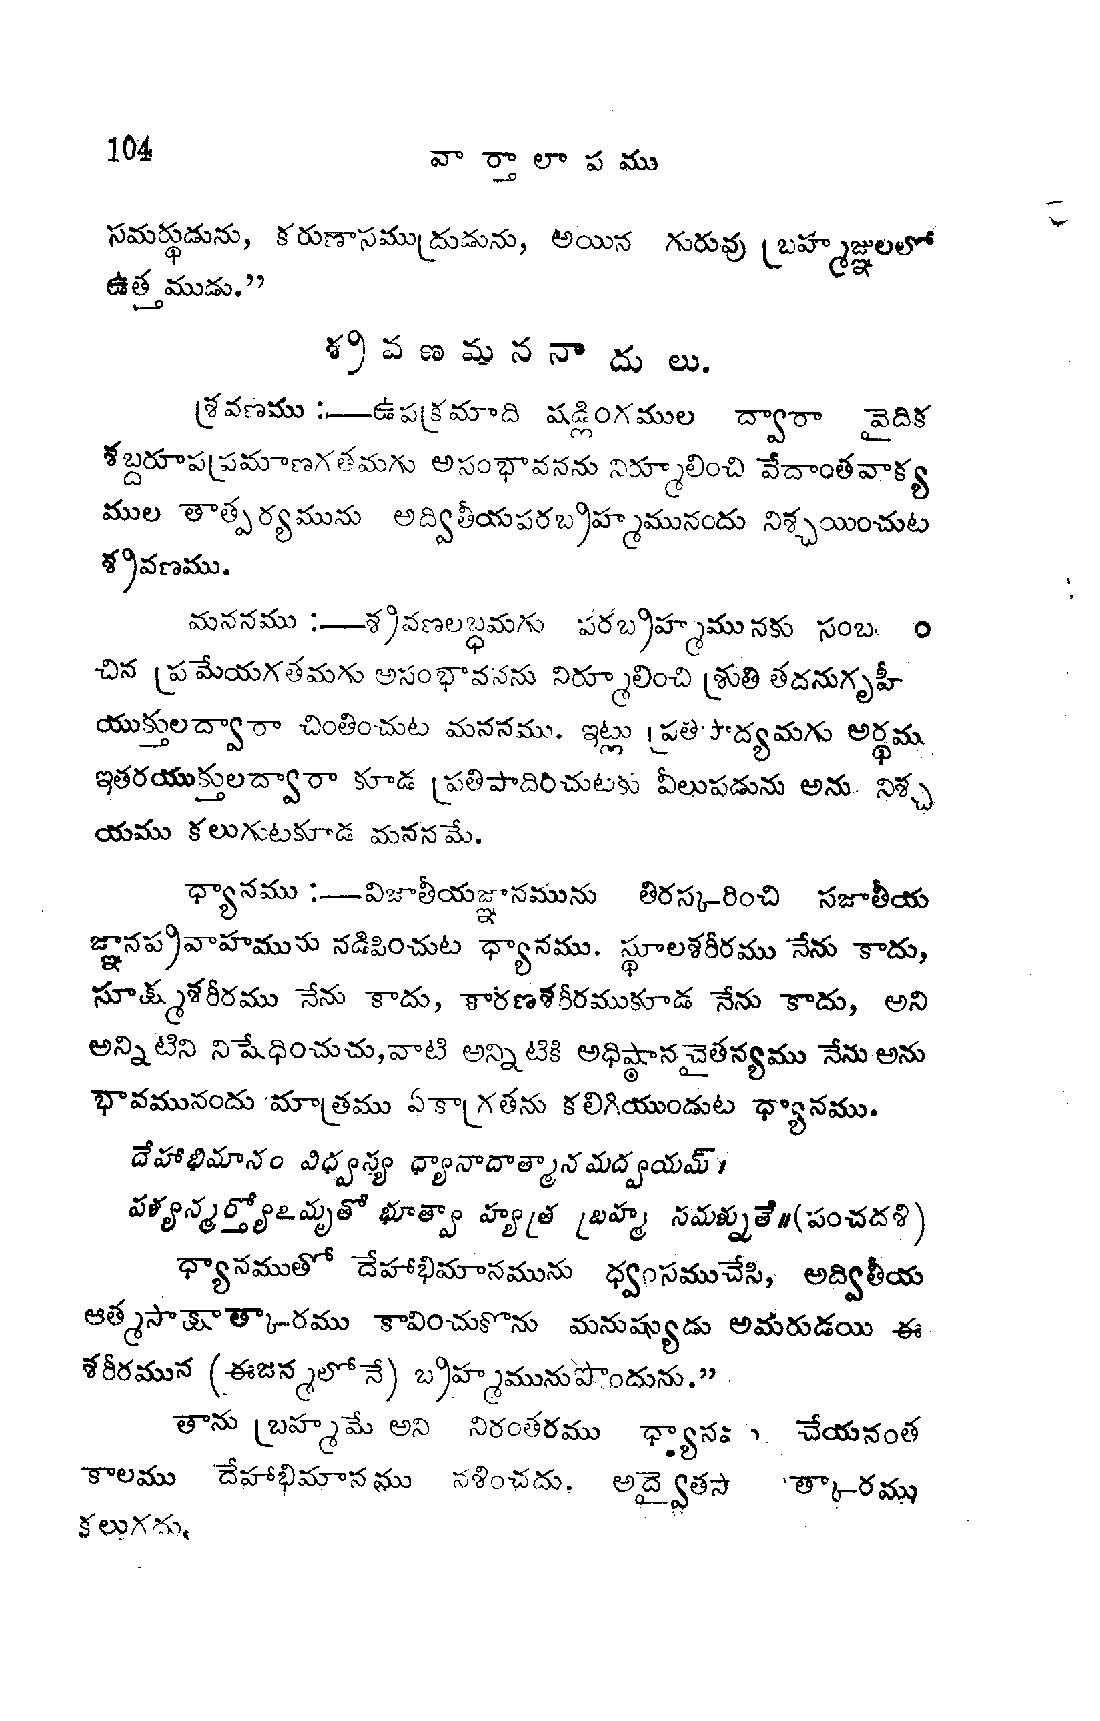 104
వార్తాలాపము
సమర్థుడును, కరుణాసముద్రుడును, అయిన గురువు బ్రహ్మజ్ఞులలో
ఉత్తముడు.”
శ్రవణమననాదులు.
శ్రవణము :—ఉపక్రమాది షడ్లింగముల ద్వారా వైదిక
శబ్దరూపప్రమాణగతమగు అసంభావనను నిర్మూలించి వేదాంతవాక్య
ముల తాత్పర్యమును అద్వితీయపరబ్రహ్మమునందు నిశ్చయించుట
శ్రవణము.
మననము :—శ్రవణలబ్ధమగు పరబ్రహ్మమునకు
చిన ప్రమేయగతమగు అసంభావనను నిర్మూలించి శ్రుతి తదనుగృహీ
యుక్తులద్వారా చింతించుట మననము. ఇట్లు ప్రతిపాద్యమగు అర్థమ
ఇతరయుక్తులద్వారా కూడ ప్రతిపాదించుటకు వీలుపడును అను నిశ్చ
యము కలుగుటకూడ మననమే.
ధ్యానము :—విజాతీయజ్ఞానమును తిరస్కరించి సజాతీయ
జ్ఞానప్రవాహమును నడిపించుట ధ్యానము. స్థూలశరీరము నేను కాదు,
సూక్ష్మశరీరము నేను కాదు, కారణశరీరముకూడ నేను కాదు, అని
అన్నిటిని నిషేధించుచు,వాటి అన్నిటికి అధిష్ఠానచైతన్యము నేను అను
భావమునందు మాత్రము ఏకాగ్రతను కలిగియుండుట ధ్యానము.
దేహాభిమానం విధ్వస్య ధ్యానాదాత్మానమద్వయమ్।
పశ్యన్మర్త్యోఽమృతో భూత్వా హ్యత్ర బ్రహ్మ సమశ్నుతే॥(పంచదశి)
ధ్యానముతో దేహాభిమానమును ధ్వంసముచేసి, అద్వితీయ
ఆత్మసాక్షాత్కారము కావించుకొను మనుష్యుడు అమరుడయి ఈ
శరీరమున (ఈజన్మలోనే) బ్రహ్మమునుపొందును.”
తాను బ్రహ్మమే అని నిరంతరము చేయనంత
కాలము దేహాభిమానము నశించదు.
కలుగదు.